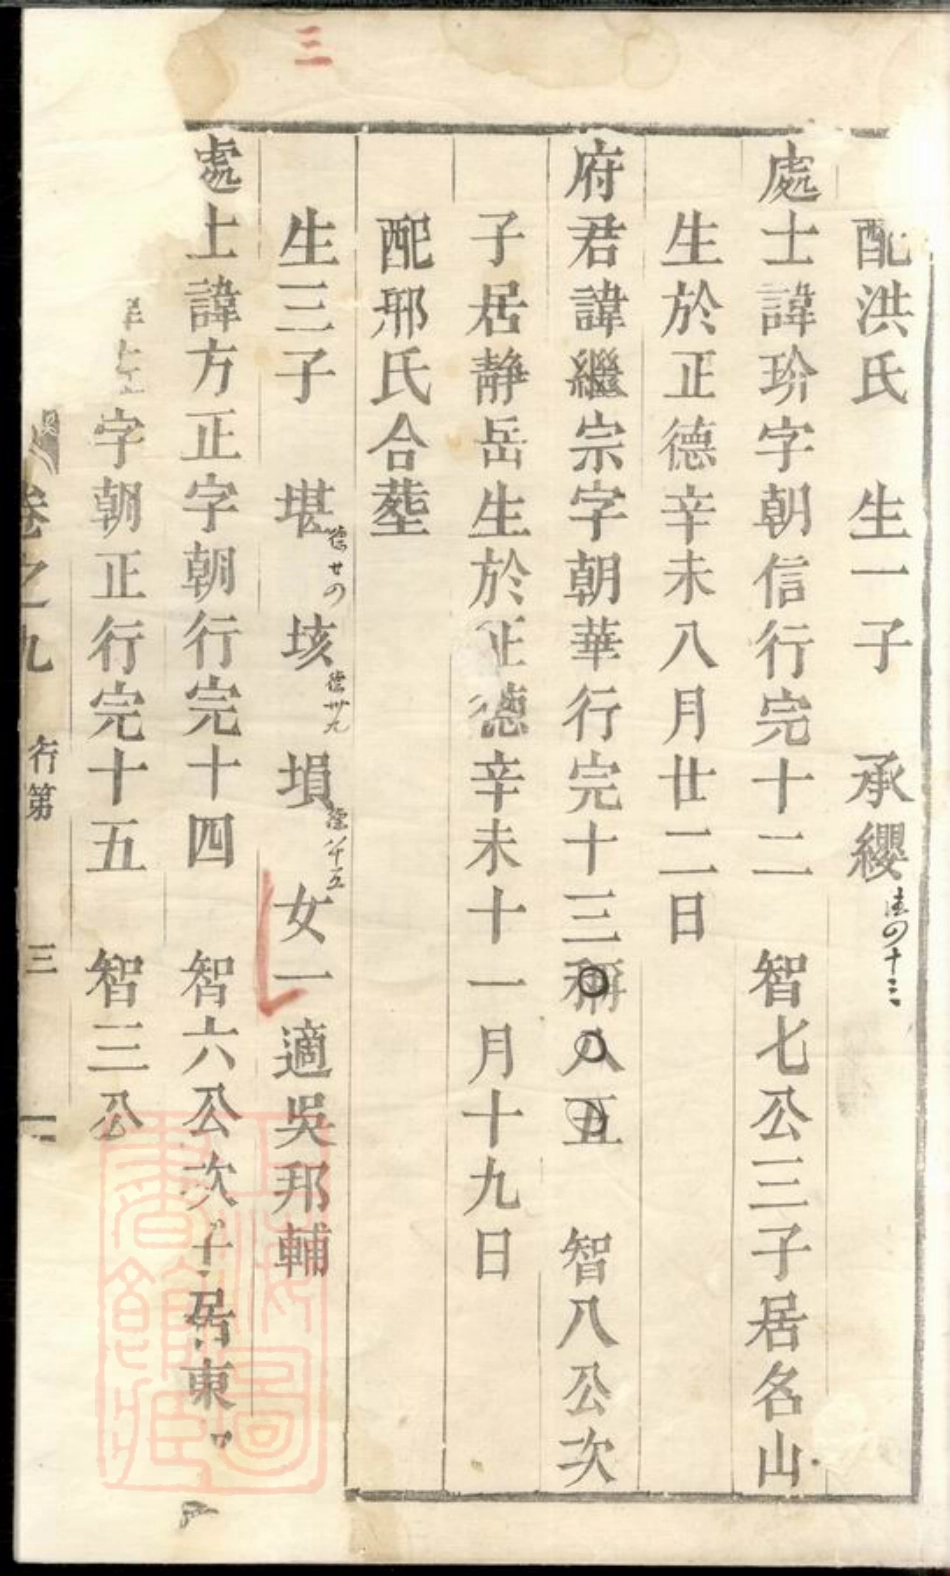 三
配洪氏 生一子 承纓
處士諱玠字朝信行完十二 智七公三子居名山
生於正德辛未八月廿二日
府君諱繼宗字朝華行完十三稱八五 智八公次
子居静岳生於正德辛未十一月十九日
配邢氏合塟
生三子 堪 垓 塤 女一適吳邦輔
處士諱方正字朝行完十四 智六公次子居東
字朝正行完十五 智三公
卷之九 行第 三